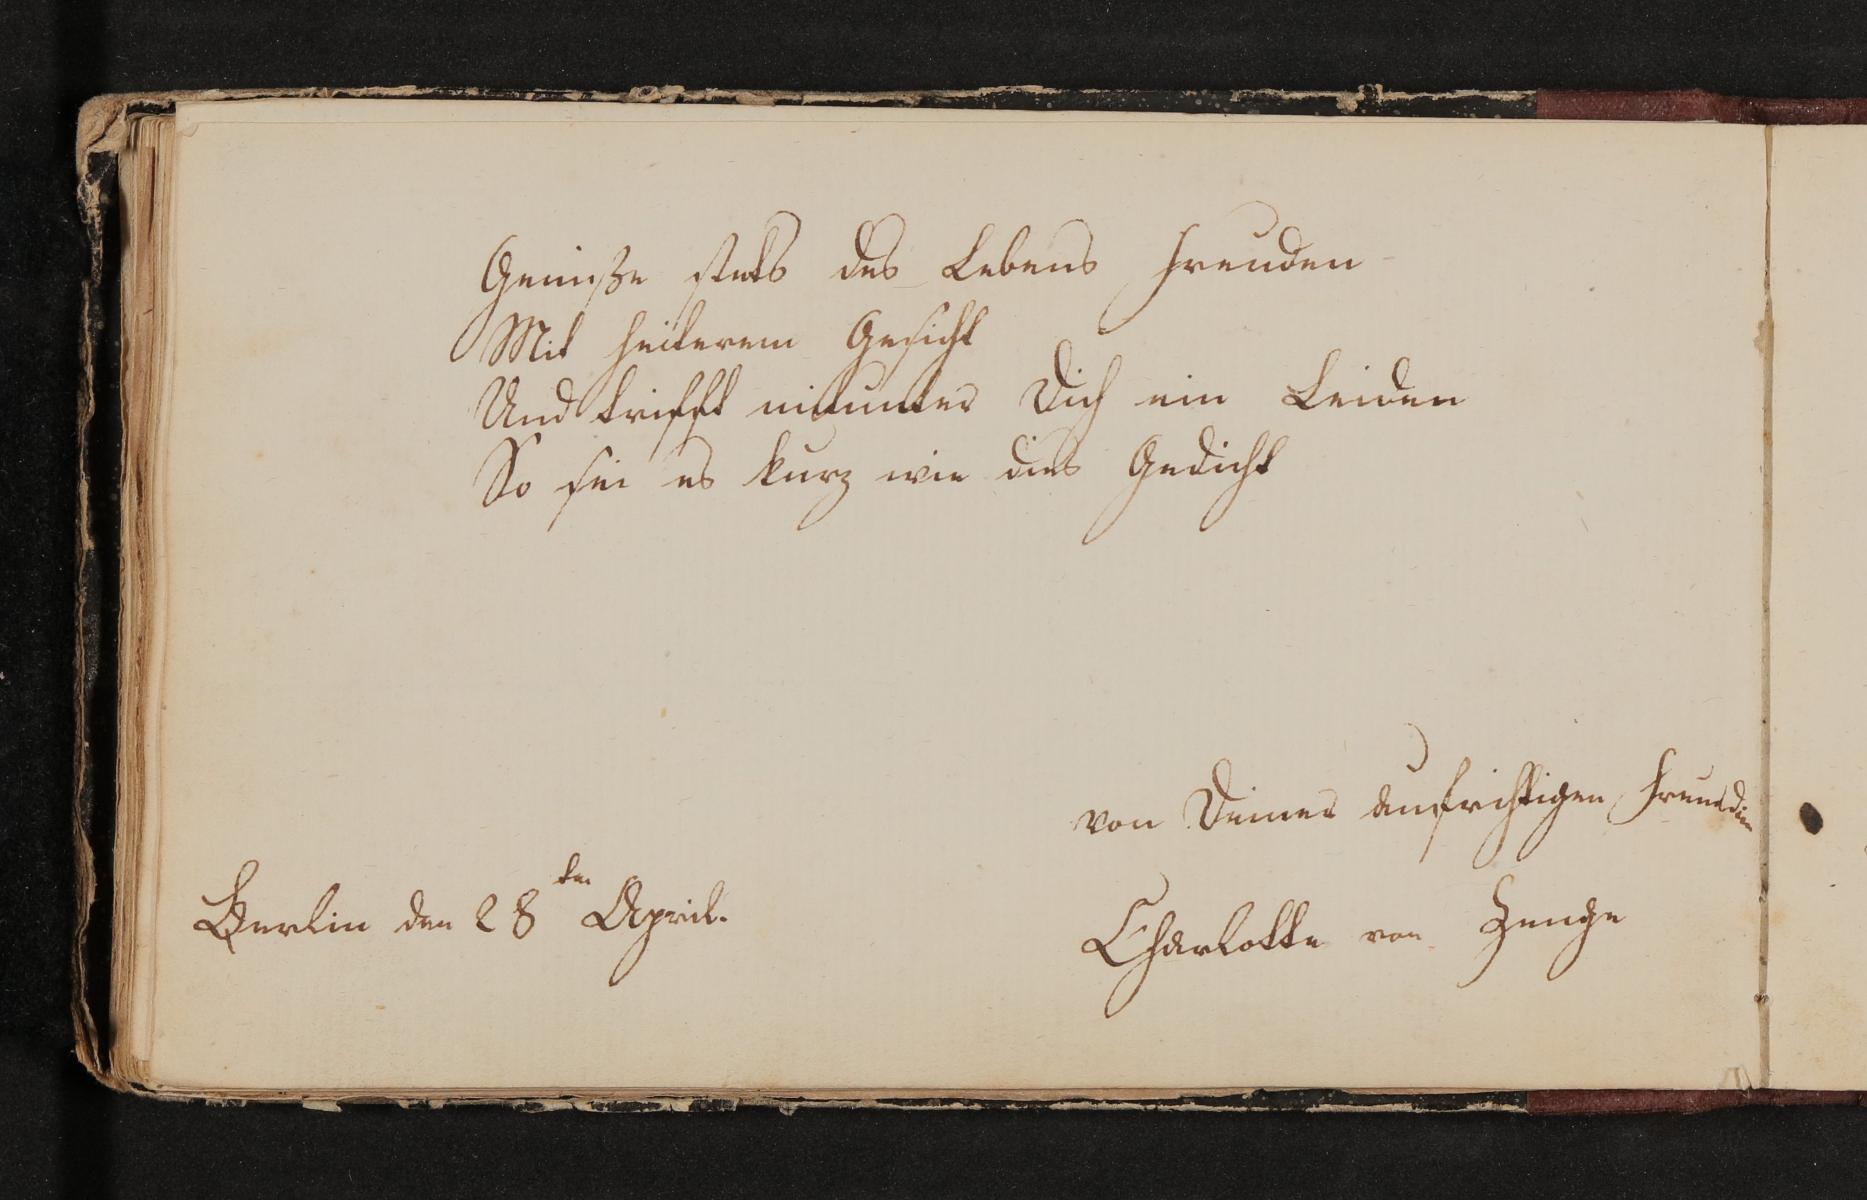 Genieße stets des Lebens Freuden
Mit heiterem Gesicht
Und trifft mitunter Dich ein Leiden
So sei es kurz wie dies Gedicht
von Deiner aufrichtigen Freundin
Berlin den 28ten April.
Charlotte von Zenge